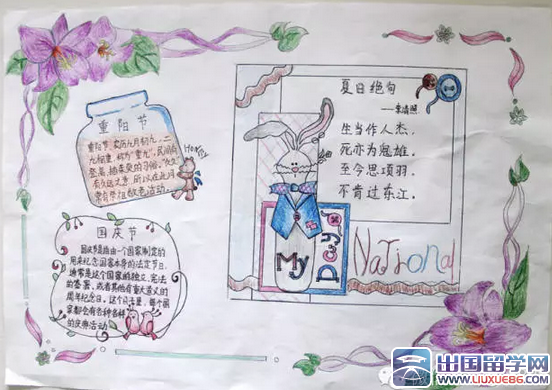 重阳节
重阳节,农历九月初九,二
九相重,称为"重九",民间有
登高
有久远之意,所以在此日
常有祭祖敬老活动。
Honey
国庆节
国庆节是由一个国家制定的
用来纪念国家本身的法定节日,
通常是这个国家的独立、宪法
的签署,或者其他有重大意义的
周年纪念日。这个日子里,每个国
家都会有各种各样
的庆典活动。
夏日绝句
——李清照
生当作人杰,
死亦为鬼雄。
至今思项羽,
不肯过东江。
My
Day
National
出国留学网
WWW.LIUXUE86.COM